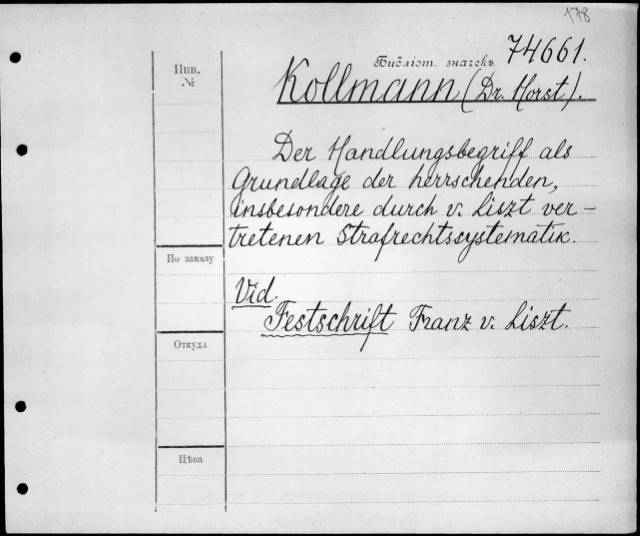 178
Библіот. значекъ 74661.
Инв.
№
Kollmann (Dr. Horst).
Der Handlungsbegriff als
Grundlage der herrschenden,
insbesondere durch v. Liszt ver-
tretenen Strafrechtssystematik.
По заказу
Vid.
Festschrift Franz v. Liszt.
Откуда
Цѣна